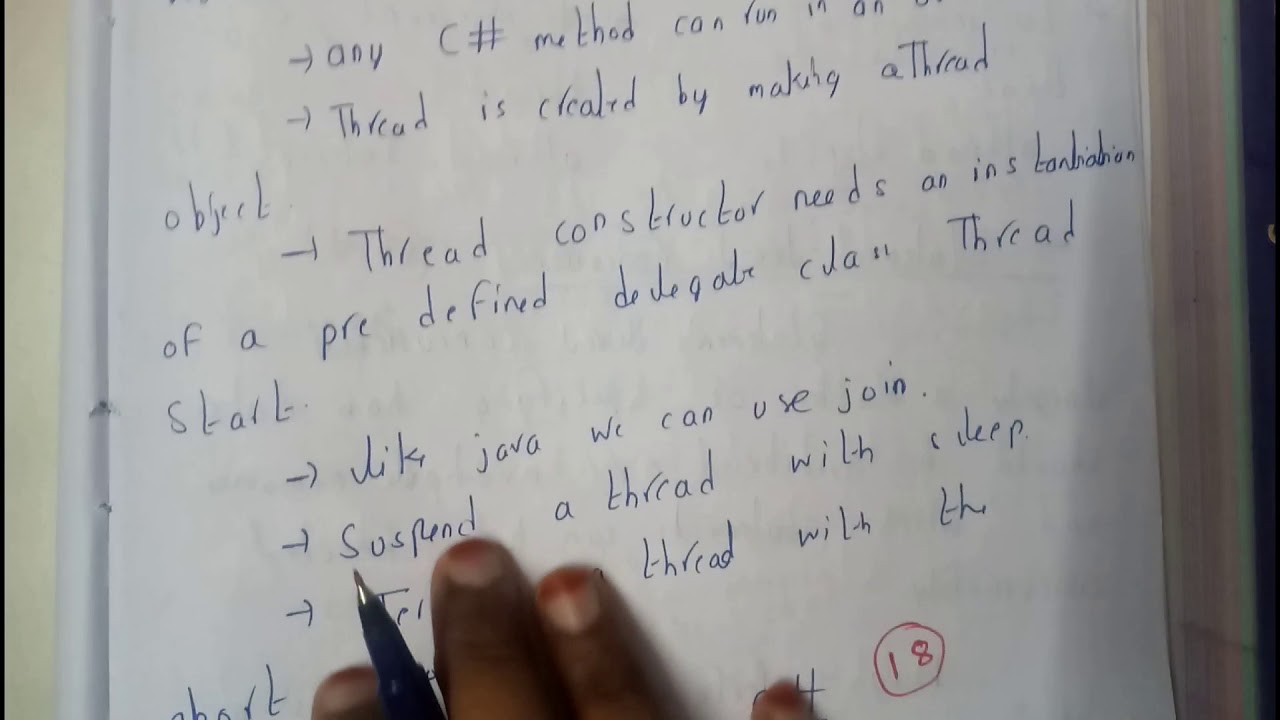 → any C# method can run in an
→ Thread is created by making a Thread
object.
→ Thread constructor needs an instantiation
of a pre defined delegate class Thread
Start.
→ like java we can use join.
→ Suspend a thread with sleep.
→ thread with the
abort
18